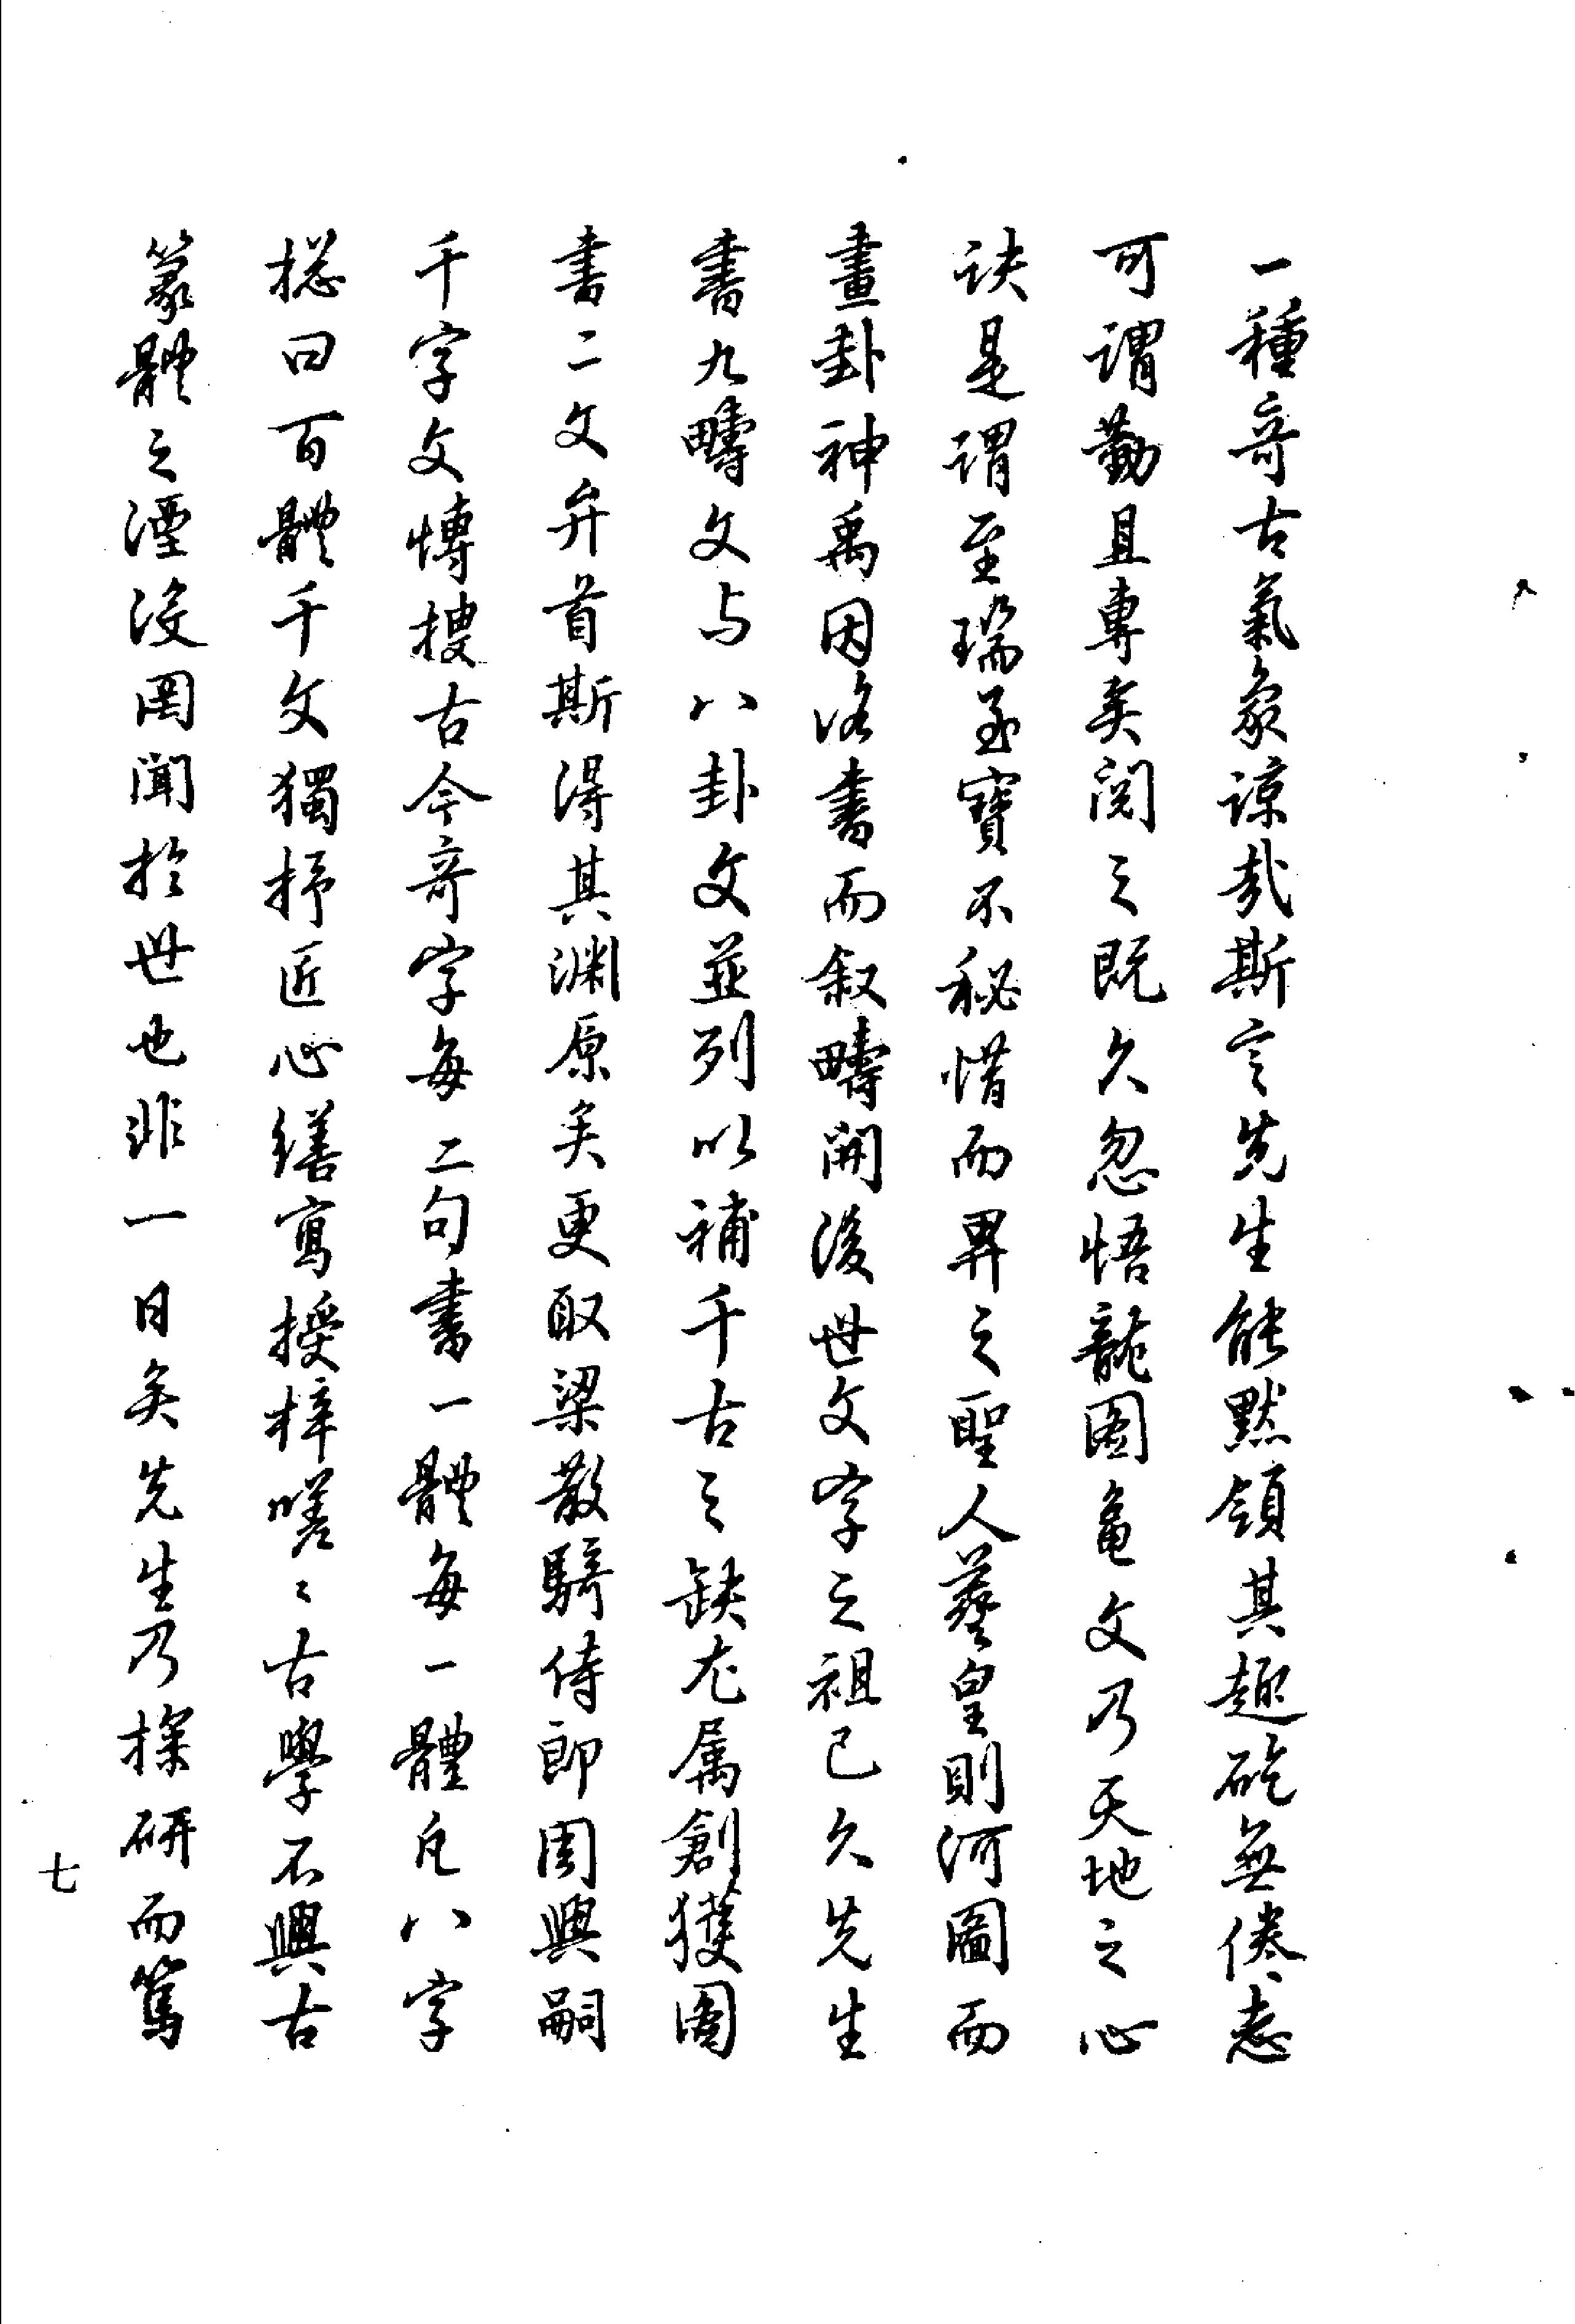 一種奇古氣象諒哉斯言先生能默領其趣矻無倦志
可謂勤且專矣閱之既久忽悟龍图龜文乃天地之心
訣是謂至瑞至寶不秘惜而畀之聖人羲皇則河圖而
畫卦神禹因洛書而叙疇開後世文字之祖已久先生
書九疇文与八卦文並列以補千古之缺尤属創獲圖
書二文弁首斯得其渊原矣更取梁散騎侍郎周興嗣
千字文博搜古今奇字每二句書一體每一體凡八字
捴曰百體千文獨抒匠心繕寫授梓嗟〻古學不興古
篆體之湮没罔聞於世也非一日矣先生乃探研而篤
七